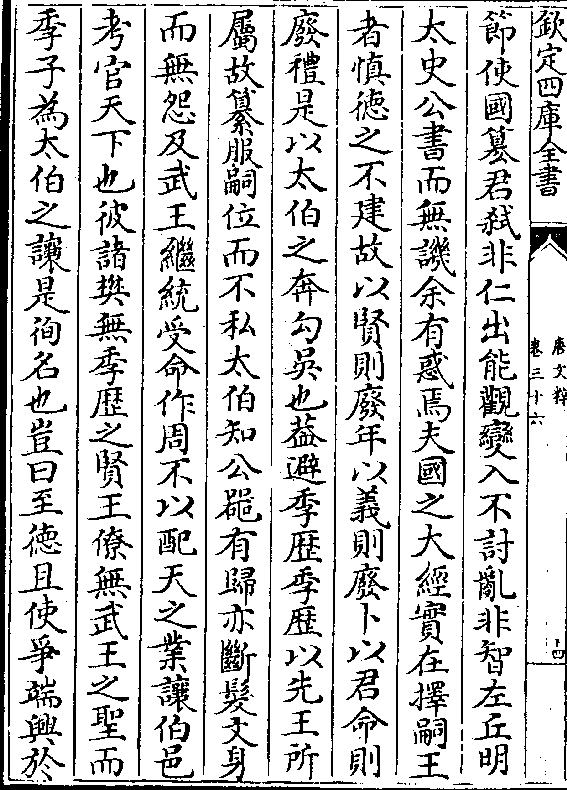 欽定四庫全書
唐文粹
卷三十六
十四
節使國簒君弑非仁出能觀變入不討亂非智左丘明
太史公書而無譏余有惑焉夫國之大經實在擇嗣王
者慎德之不建故以賢則廢年以義則廢卜以君命則
廢禮是以太伯之奔勾吳也葢避季歴季歴以先王所
屬故纂服嗣位而不私太伯知公器有歸亦斷髮文身
而無怨及武王繼統受命作周不以配天之業讓伯邑
考官天下也彼諸樊無季歴之賢王僚無武王之聖而
季子為太伯之讓是徇名也豈曰至徳且使爭端興於